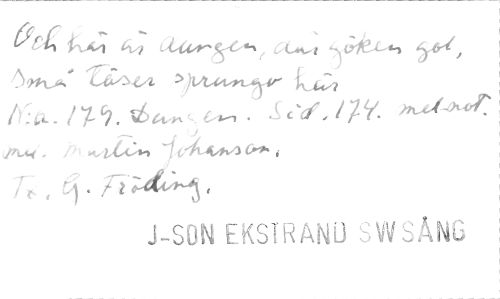 Och här är dungen, där göken gol,
små täser sprungo här
N:o. 179. Dungen. Sid. 174. mel-not.
mel. Martin Johanson.
Tx. G. Fröding.
J-SON EKSTRAND SWSÅNG